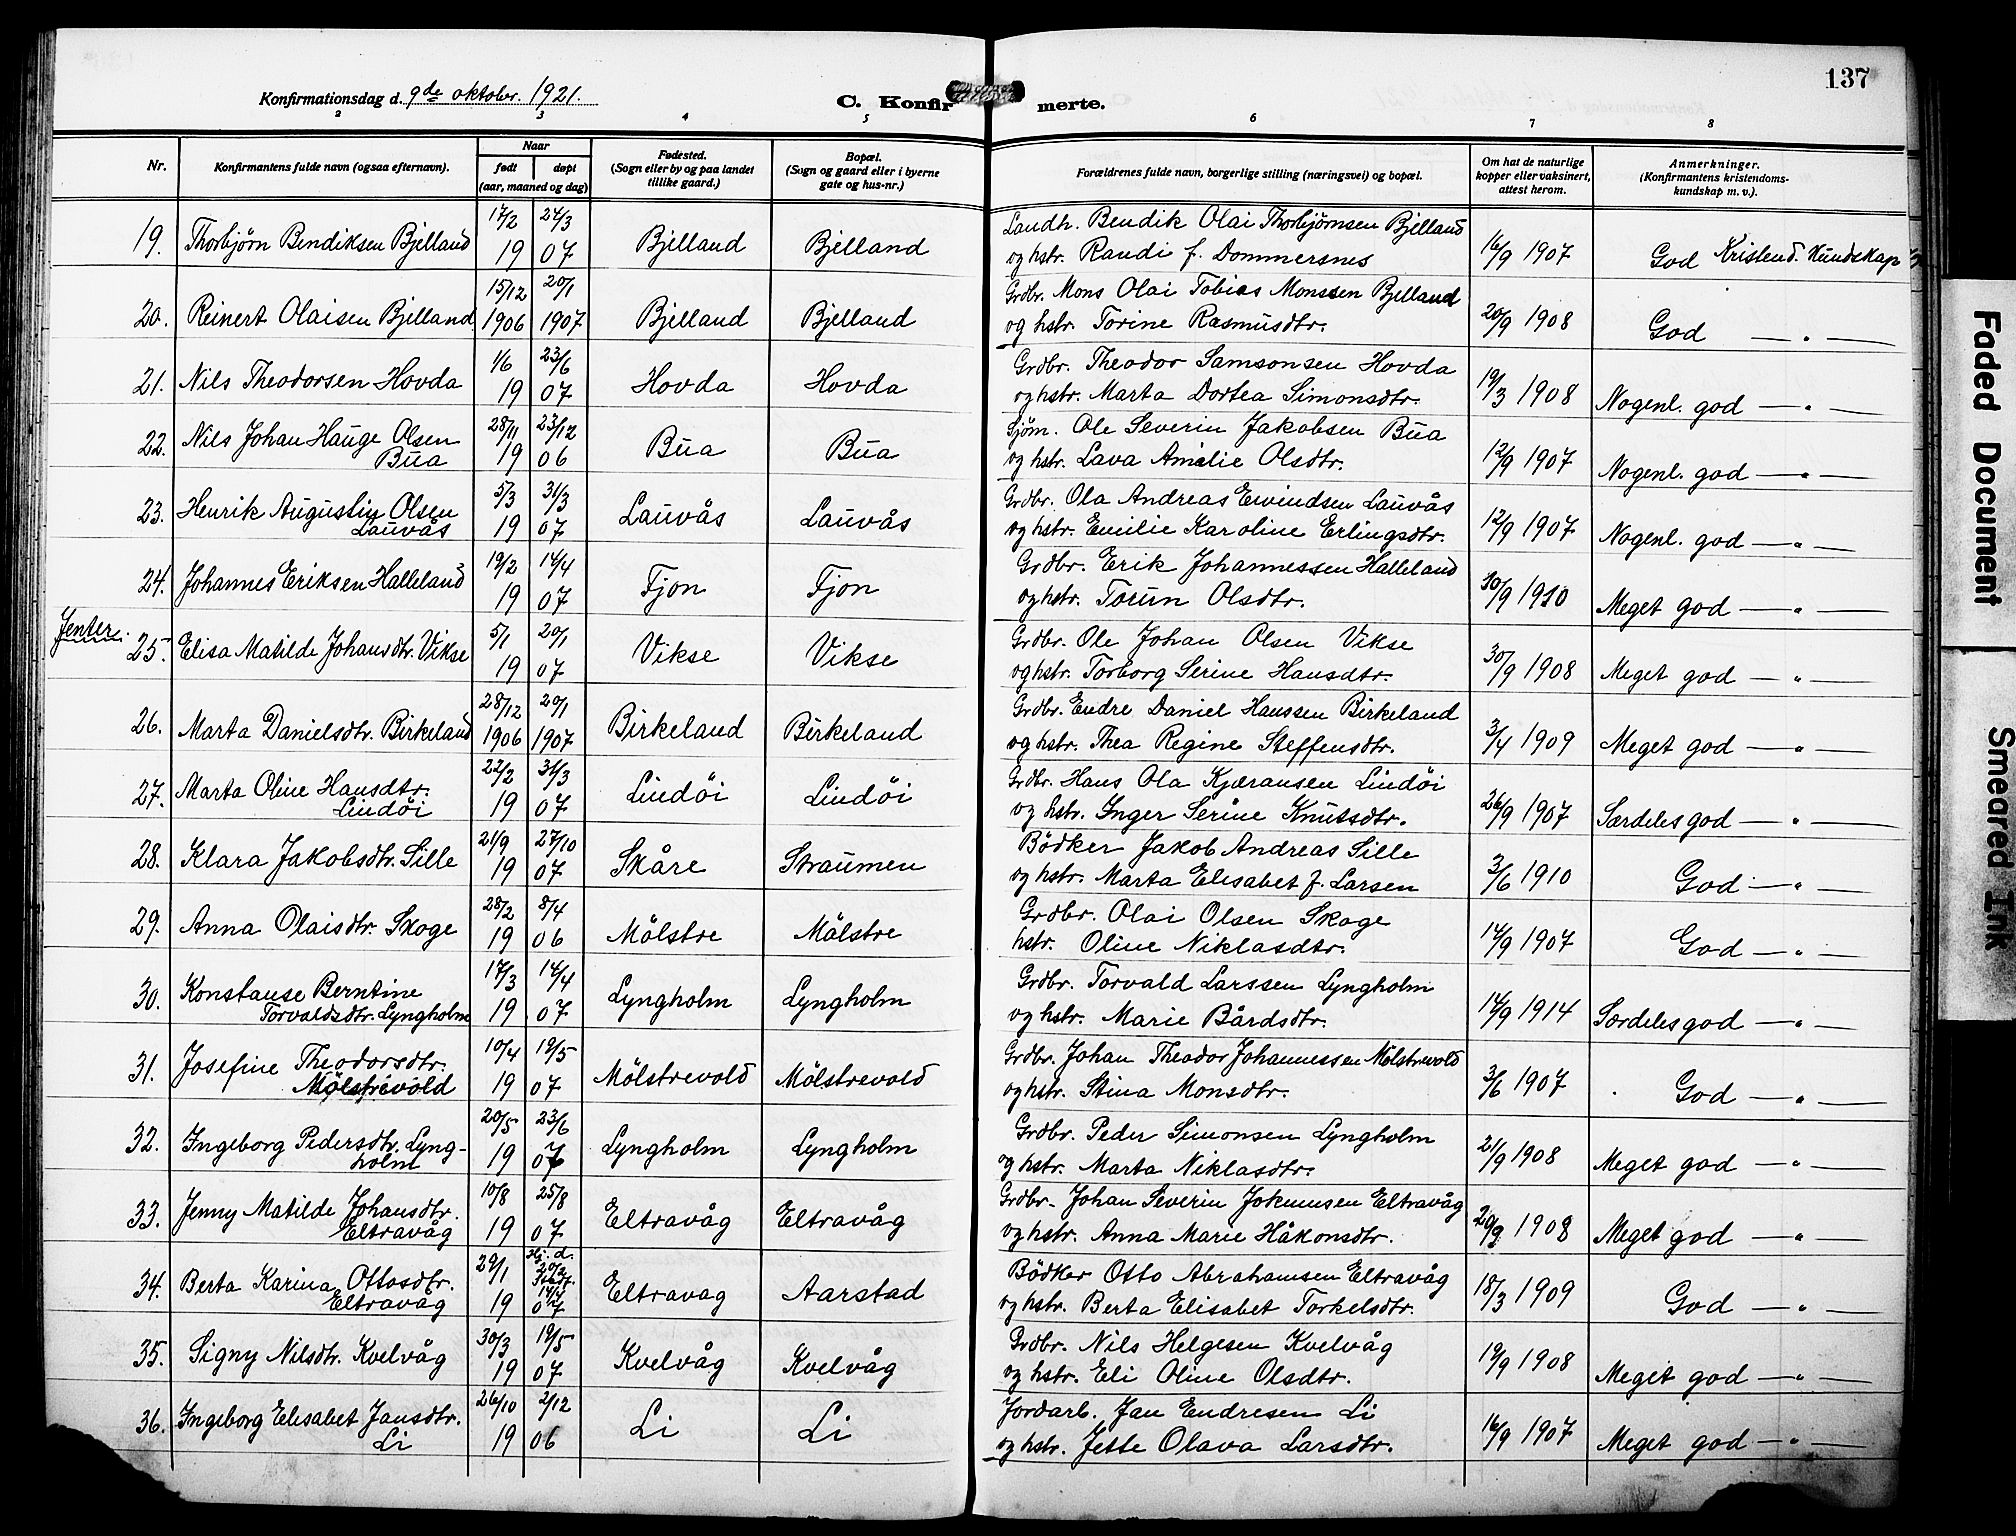 137
Konfirmationsdag d. 9de oktober. 1921.
C. Konfirmerte.
2 3 4 5 6 7 8
Nr.
Konfirmantens fulde navn (ogsaa efternavn).
Naar
født
døpt
(aar, maaned og dag)
Fødested.
(Sogn eller by og paa landet
tillike gaard.)
Bopæl.
(Sogn og gaard eller i byerne
gate og hus-nr.)
Forældrenes fulde navn, borgerlige stilling (næringsvei) og bopæl.
Om hat de naturlige
kopper eller vaksinert,
attest herom.
Anmerkninger.
(Konfirmantens kristendoms-
kundskap m. v.).
17/2 24/3 Landh. Bendik Olai Thorbjørnsen Bjelland
19. Thorbjørn Bendiksen Bjelland 19 07 Bjelland Bjelland og hstr. Randi f. Dommersnes 16/9 1907 God Kristend. Kundskap
15/12 20/1 Grdbr. Mons Olai Tobias Monssen Bjelland
20. Reinert Olaisen Bjelland 1906 1907 Bjelland Bjelland og hstr. Torine Rasmusdtr. 20/9 1908 God — „ —
1/6 23/6 Grdbr. Theodor Samsonsen Hovda
21. Nils Theodorsen Hovda 19 07 Hovda Hovda og hstr. Marta Dortea Simonsdtr. 19/3 1908 Nogenl. god — „ —
22. Nils Johan Hauge Olsen 28/11 23/12 Sjøm. Ole Severin Jakobsen Bua
Bua 19 06 Bua Bua og hstr. Lava Amalie Olsdtr. 12/9 1907 Nogenl. god — „ —
23. Henrik Augustin Olsen 5/3 31/3 Grdbr. Ola Andreas Eivindsen Lauvås
Lauvås 19 07 Lauvås Lauvås og hstr. Emilie Karoline Erlingsdtr. 12/9 1907 Nogenl. god — „ —
19/2 14/4 Grdbr. Erik Johannessen Halleland
24. Johannes Eriksen Halleland 19 07 Tjon Tjon og hstr. Torun Olsdtr. 30/9 1910 Meget god — „ —
Jenter.
5/1 20/1 Grdbr. Ole Johan Olsen Vikse
25. Elisa Matilde Johansdtr. Vikse 19 07 Vikse Vikse og hstr. Torborg Serine Hansdtr. 30/9 1908 Meget god — „ —
28/12 20/1 Grdbr. Endre Daniel Hanssen Birkeland
26. Marta Danielsdtr. Birkeland 1906 1907 Birkeland Birkeland og hstr. Thea Regine Steffensdtr. 3/4 1909 Meget god — „ —
27. Marta Oline Hansdtr. 22/2 31/3 Grdbr. Hans Ola Kjæransen Lindöi
Lindöi 19 07 Lindöi Lindöi og hstr. Inger Serine Knutsdtr. 26/9 1907 Særdeles god — „ —
21/9 27/10 Bödker Jakob Andreas Sille
28. Klara Jakobsdtr. Sille 19 07 Skåre Straumen og hstr. Marta Elisabet f. Larsen 3/6 1910 God — „ —
28/2 8/4 Grdbr. Olai Olsen Skoge
29. Anna Olaisdtr. Skoge 19 06 Mölstre Mölstre hstr. Oline Niklasdtr. 14/9 1907 God — „ —
30. Konstanse Berntine 17/3 14/4 Grdbr. Torvald Larssen Lyngholm
Torvaldsdtr. Lyngholm 19 07 Lyngholm Lyngholm og hstr. Marie Bårdsdtr. 14/9 1914 Særdeles god — „ —
31. Josefine Theodorsdtr. 10/4 19/5 Grdbr. Johan Theodor Johannessen Mölstrevold
Mölstrevold 19 07 Mölstrevold Mölstrevold og hstr. Stina Monsdtr. 3/6 1907 God — „ —
32. Ingeborg Pedersdtr. Lyng- 20/5 23/6 Grdbr. Peder Simonsen Lyngholm
holm 19 07 Lyngholm Lyngholm og hstr. Marta Niklasdtr. 21/9 1908 Meget god — „ —
33. Jenny Matilde Johansdtr. 10/8 25/8 Grdbr. Johan Severin Jokumsen Eltravåg
Eltravåg 19 07 Eltravåg Eltravåg og hstr. Anna Marie Håkonsdtr. 20/9 1908 Meget god — „ —
34. Berta Karina Ottosdtr. 29/1 Hj. d. 20/2 Bödker Otto Abrahamsen Eltravåg
Eltravåg 19 07 Eltravag Aarstad og hstr. Berta Elisabet Torkelsdtr. 18/3 1909 God — „ —
30/3 19/5 Grdbr. Nils Helgesen Kvelvåg
35. Signy Nilsdtr. Kvelvåg 19 07 Kvelvåg Kvelvåg og hstr. Eli Oline Olsdtr. 19/9 1908 Meget god — „ —
36. Ingeborg Elisabet Jansdtr. 26/10 2/12 Jordarb. Jan Endresen Li
Li 19 06 Li Li og hstr. Jette Olava Larsdtr. 16/9 1907 Meget god — „ —
Faded Document
Smeared Ink